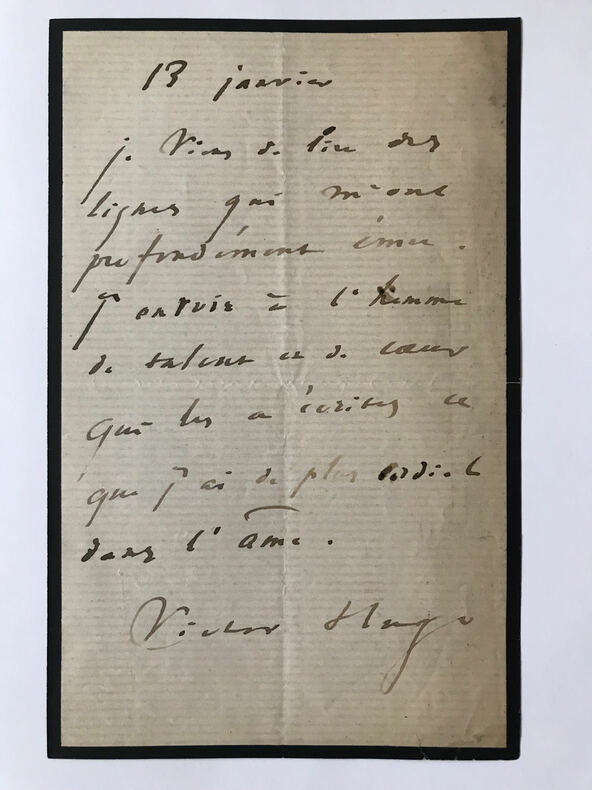 13 janvier
je viens de lire des
lignes qui m'ont
profondément ému.
J'envoie à l'homme
de talent et de cœur
qui les a écrites ce
que j'ai de plus cordial
dans l'âme.
Victor Hugo